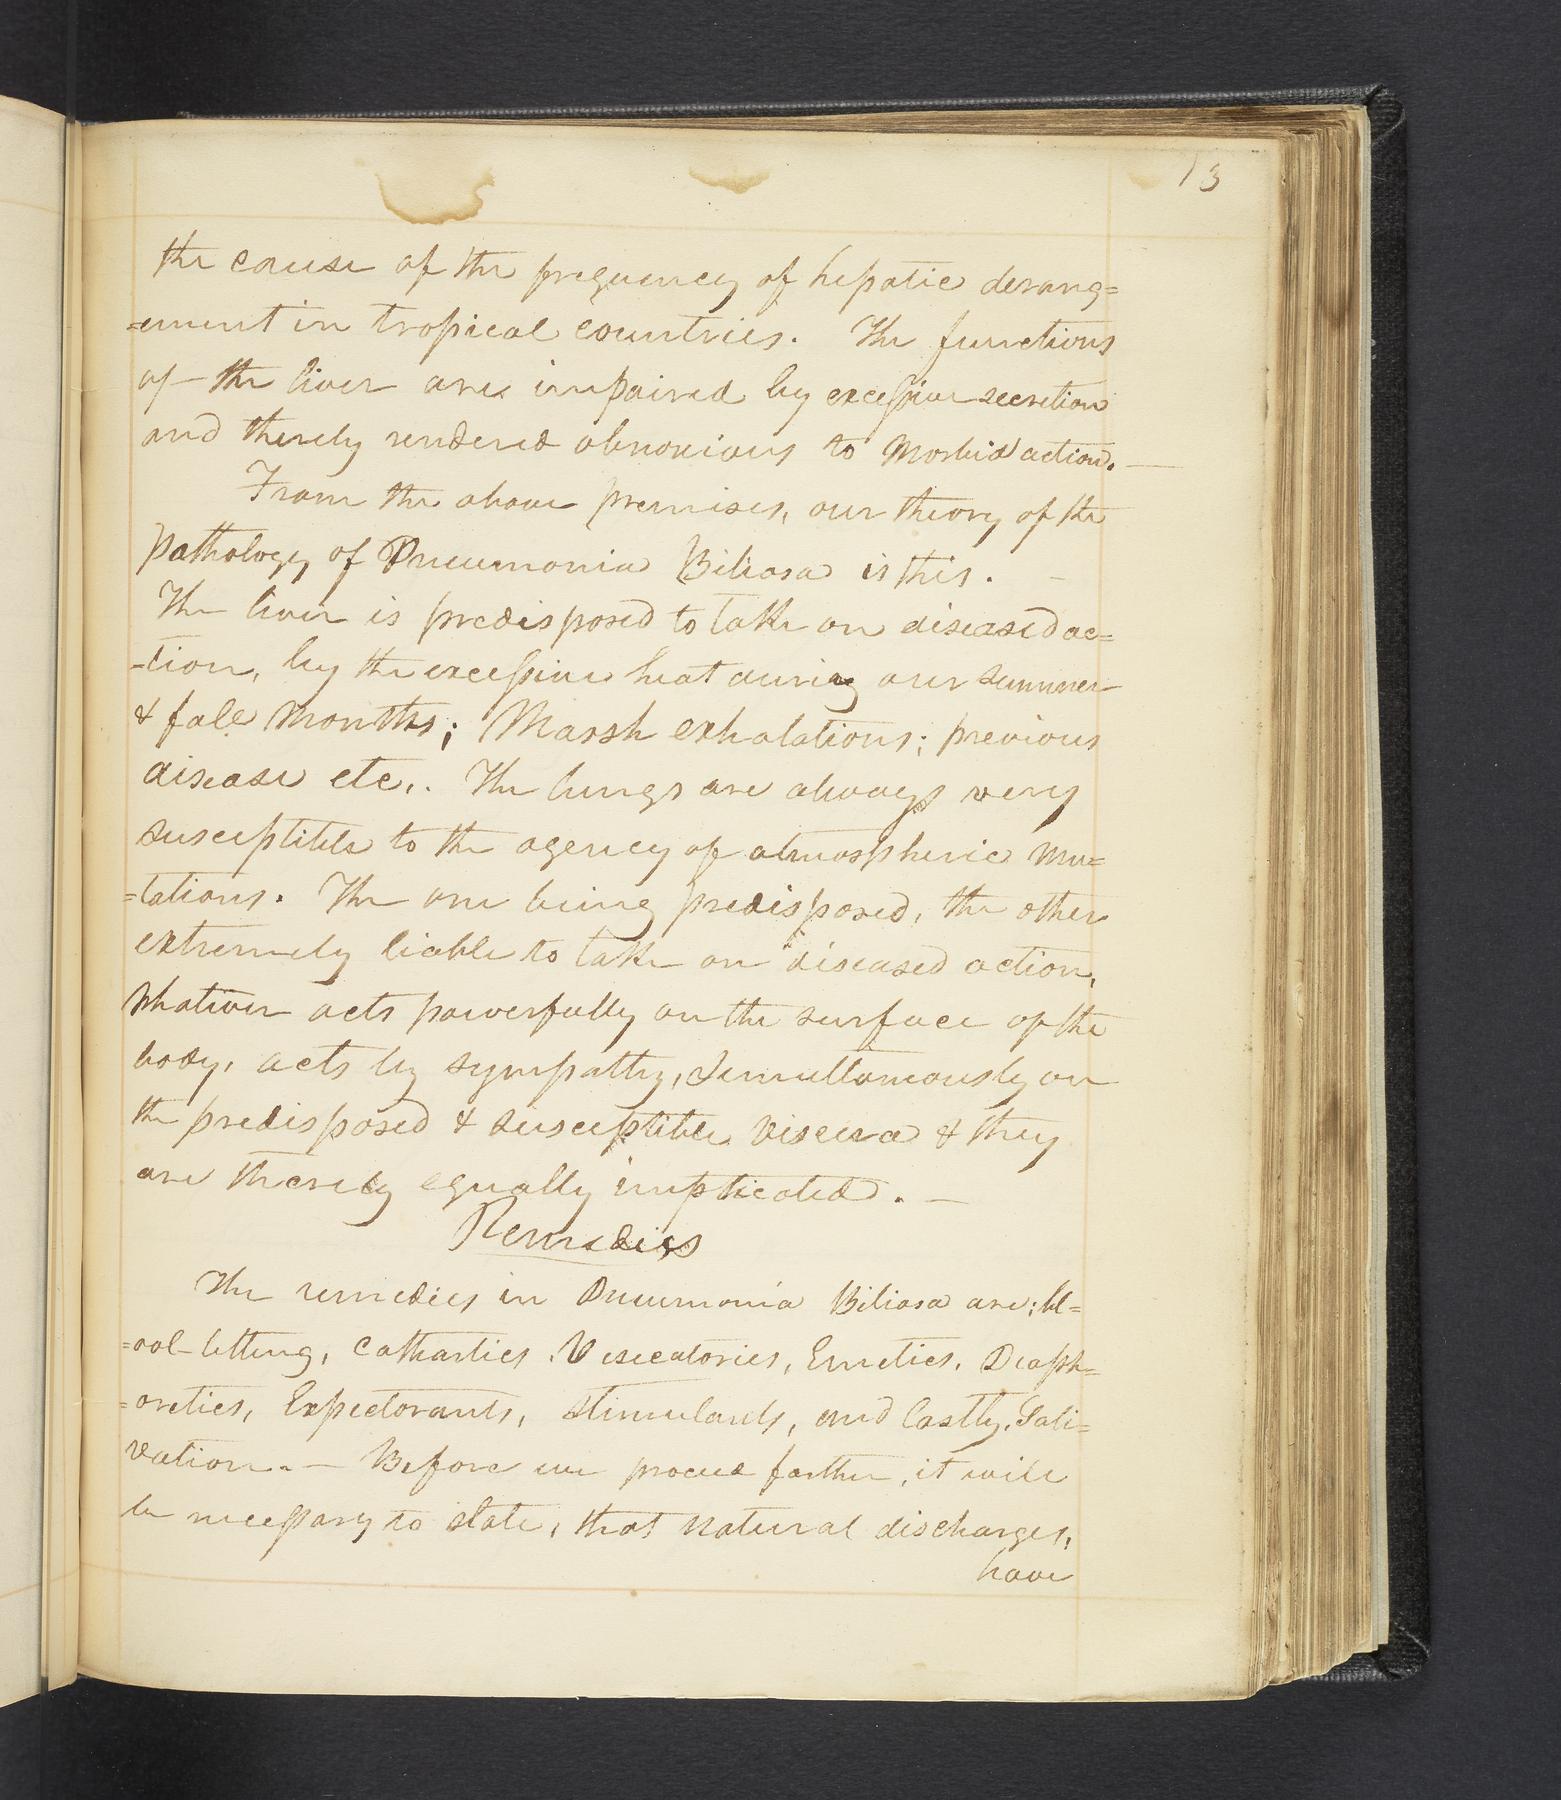 13
the cause of the frequency of hepatic derang=
=ement in tropical countries. The functions
of the liver are impaired by excessive secretion
and thereby rendered obnoxious to Morbid action. —
From the above premises, our theory of the
pathology of Pneumonia Biliosa is this. —
The liver is predisposed to take on diseased ac=
=tion, by the excessive heat during our summer
& fall months; Marsh exhalations; previous
disease etc,. The lungs are always very
susceptible to the agency of atmospheric mu=
=tations. The one being predisposed, the other
extremely liable to take on diseased action,
Whatever acts powerfully on the surface of the
body, acts by sympathy, simultaneously on
the predisposed & susceptible viscera & they
are thereby equally implicated. —
Remedies
The remedies in Pneumonia Biliosa are; bl=
=ood-letting, Cathartics, Vesicatories, Emetics, Diaph=
=oretics, Expectorants, stimulants, and lastly, Sali=
vation. — Before we proceed farther, it will
be necessary to state, that natural discharges,
have